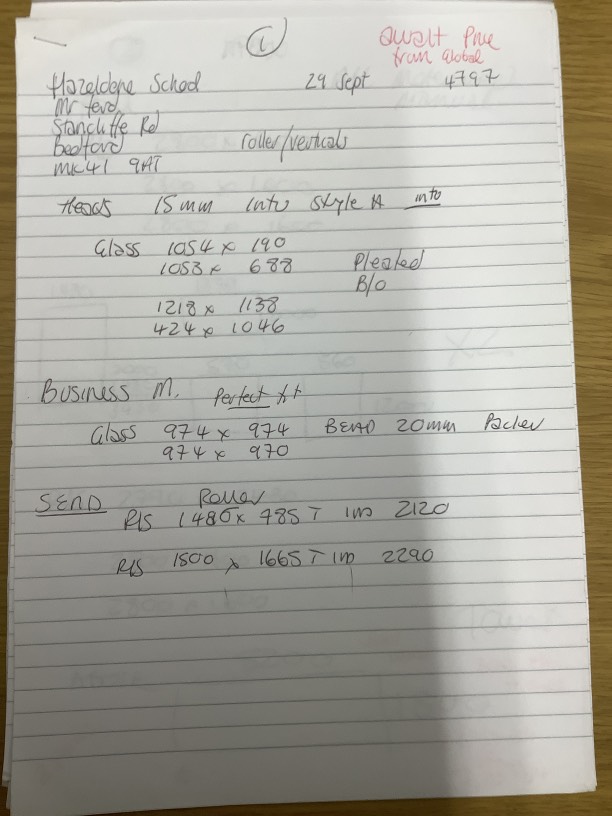 1
Await Price
from Global
Hazeldene School 29 Sept 4797
Mr Ford
Stancliffe Rd
Bedford roller/verticals
MK41 9AT
Heads 15mm into style A into
Glass 1054 x 190
1053 x 688 Pleated
B/O
1218 x 1138
424 x 1046
Business M. Perfect fit
Glass 974 x 974 BEAD 20mm Packer
974 x 970
SEND Roller
R/S 1480 x 785 T 2120
R/S 1500 x 1665 T 2290